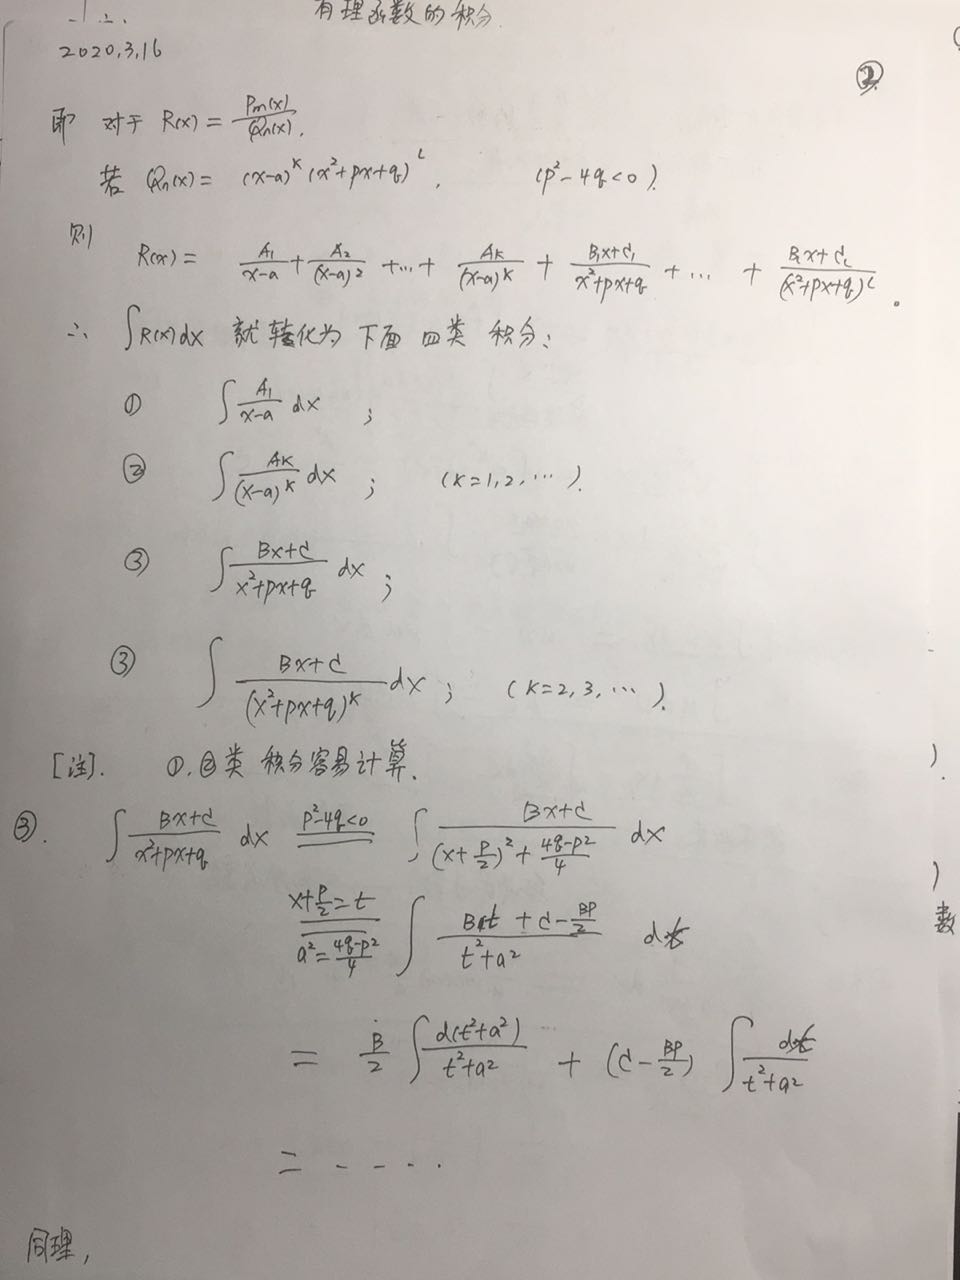 有理函数的积分.
2020.3.16
②
即 对于 R(x) = Pm(x)/Qn(x).
若 Qn(x) = (x-a)^k (x²+px+q)^l, (p²-4q<0).
则
R(x) = A₁/(x-a) + A₂/(x-a)² + … + Ak/(x-a)^k + (B₁x+C₁)/(x²+px+q) + … + (Bₗx+Cₗ)/(x²+px+q)^l。
∴ ∫R(x)dx 就转化为下面四类积分:
① ∫ A₁/(x-a) dx ;
② ∫ Ak/(x-a)^k dx ; (k=1,2,…).
③ ∫ (Bx+C)/(x²+px+q) dx ;
③ ∫ (Bx+C)/(x²+px+q)^k dx ; (k=2,3,…).
[注]. ①.②类 积分容易计算.
③. ∫ (Bx+C)/(x²+px+q) dx \overset{p²-4q<0}{=} ∫ (Bx+C)/((x+p/2)²+(4q-p²)/4) dx
\overset{x+p/2=t}{\underset{a²=(4q-p²)/4}{=}} ∫ (Bt+C-BP/2)/(t²+a²) dt
= B/2 ∫ d(t²+a²)/(t²+a²) + (C-BP/2) ∫ dt/(t²+a²)
= - - - - .
同理,
).
)
数